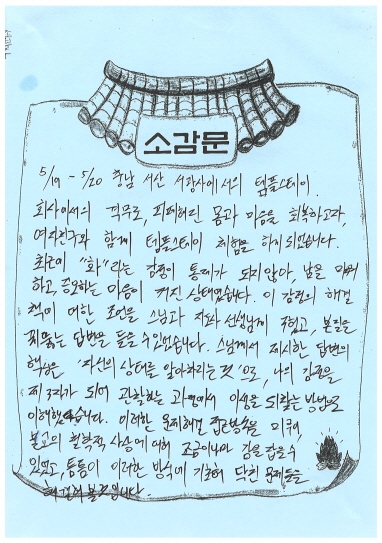 소감문
5/19 - 5/20 충남 서산 서광사에서의 템플스테이.
회사에서의 격무로, 피폐해진 몸과 마음을 회복하고자,
여자친구와 함께 템플스테이 체험을 하게 되었습니다.
최근에 "화"라는 감정이 통제가 되지 않아, 남을 미워
하고, 증오하는 마음이 커진 상태였습니다. 이 감정의 해결
책에 대한 조언을 스님과 지도 선생님께 구했고, 본질을
꿰뚫는 답변을 들을 수 있었습니다. 스님께서 제시한 답변의
핵심은 '자신의 상태를 알아차리는 것'으로, 나의 감정을
제 3자가 되어 관찰하는 과정에서 이성을 되찾는 방법으로
이해했습니다. 이러한 문제해결 접근방식을 미루어,
불교의 철학적 사상에 대해 조금이나마 감을 잡을 수
있었고, 틈틈이 이러한 방식에 기초해 닥친 문제들을
해결해 볼 것입니다.